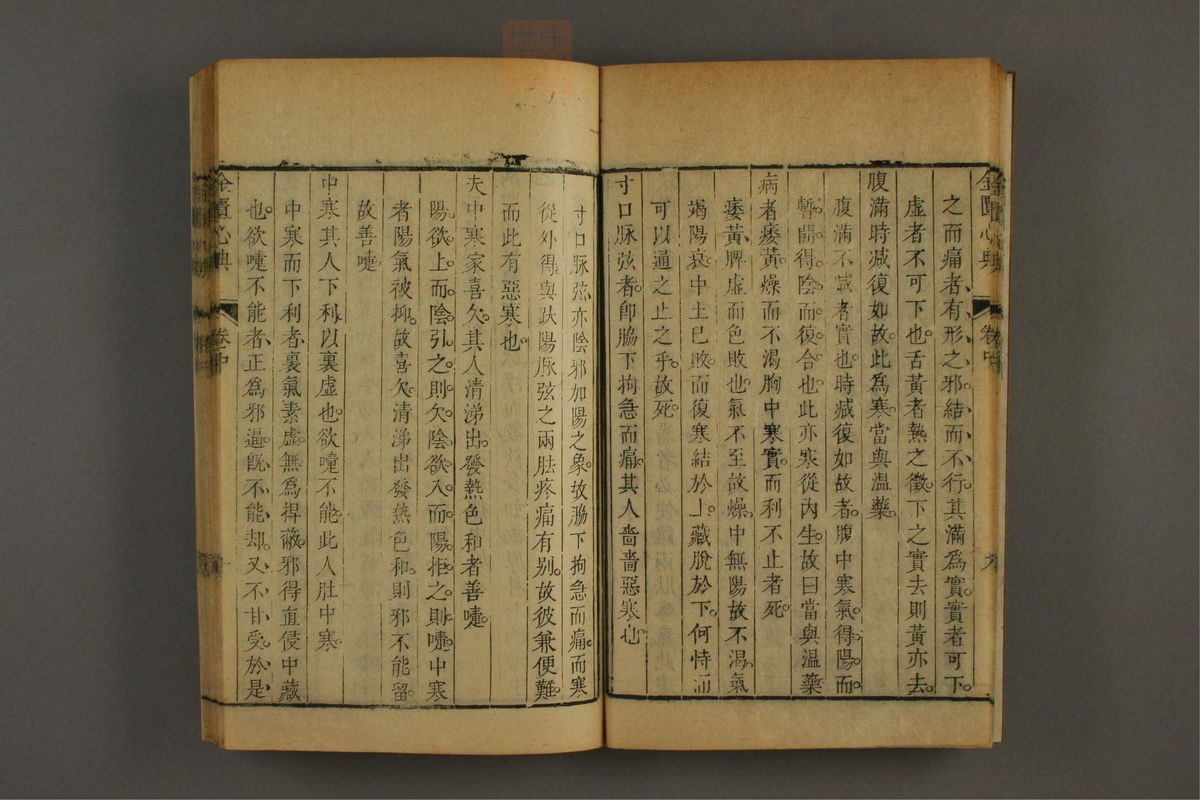 金匱心典
卷中
九
之而痛者有形之邪結而不行其滿為實實者可下
虛者不可下也舌黃者熱之徵下之實去則黃亦去
腹滿時減復如故此為寒當與溫藥
腹滿不減者實也時減復如故者腹中寒氣得陽而
暫開得陰而復合也此亦寒從內生故曰當與溫藥
病者痿黃燥而不渴胸中寒實而利不止者死
痿黃脾虛而色敗也氣不至故燥中無陽故不渴氣
竭陽衰中土已敗而復寒結於上藏脫於下何恃而
可以通之止之乎故死
寸口脉弦者卽脇下拘急而痛其人嗇嗇惡寒也
寸口脉弦亦陰邪加陽之象故脇下拘急而痛而寒
從外得與趺陽脉弦之兩胠疼痛有別故彼兼便難
而此有惡寒也
夫中寒家喜欠其人清涕出發熱色和者善嚏
陽欲上而陰引之則欠陰欲入而陽拒之則嚏中寒
者陽氣被抑故喜欠清涕出發熱色和則邪不能留
故善嚏
中寒其人下利以裏虛也欲嚏不能此人肚中寒
中寒而下利者裏氣素虛無為捍蔽邪得直侵中藏
也欲嚏不能者正為邪逼旣不能却又不甘受於是
金匱心典
卷中